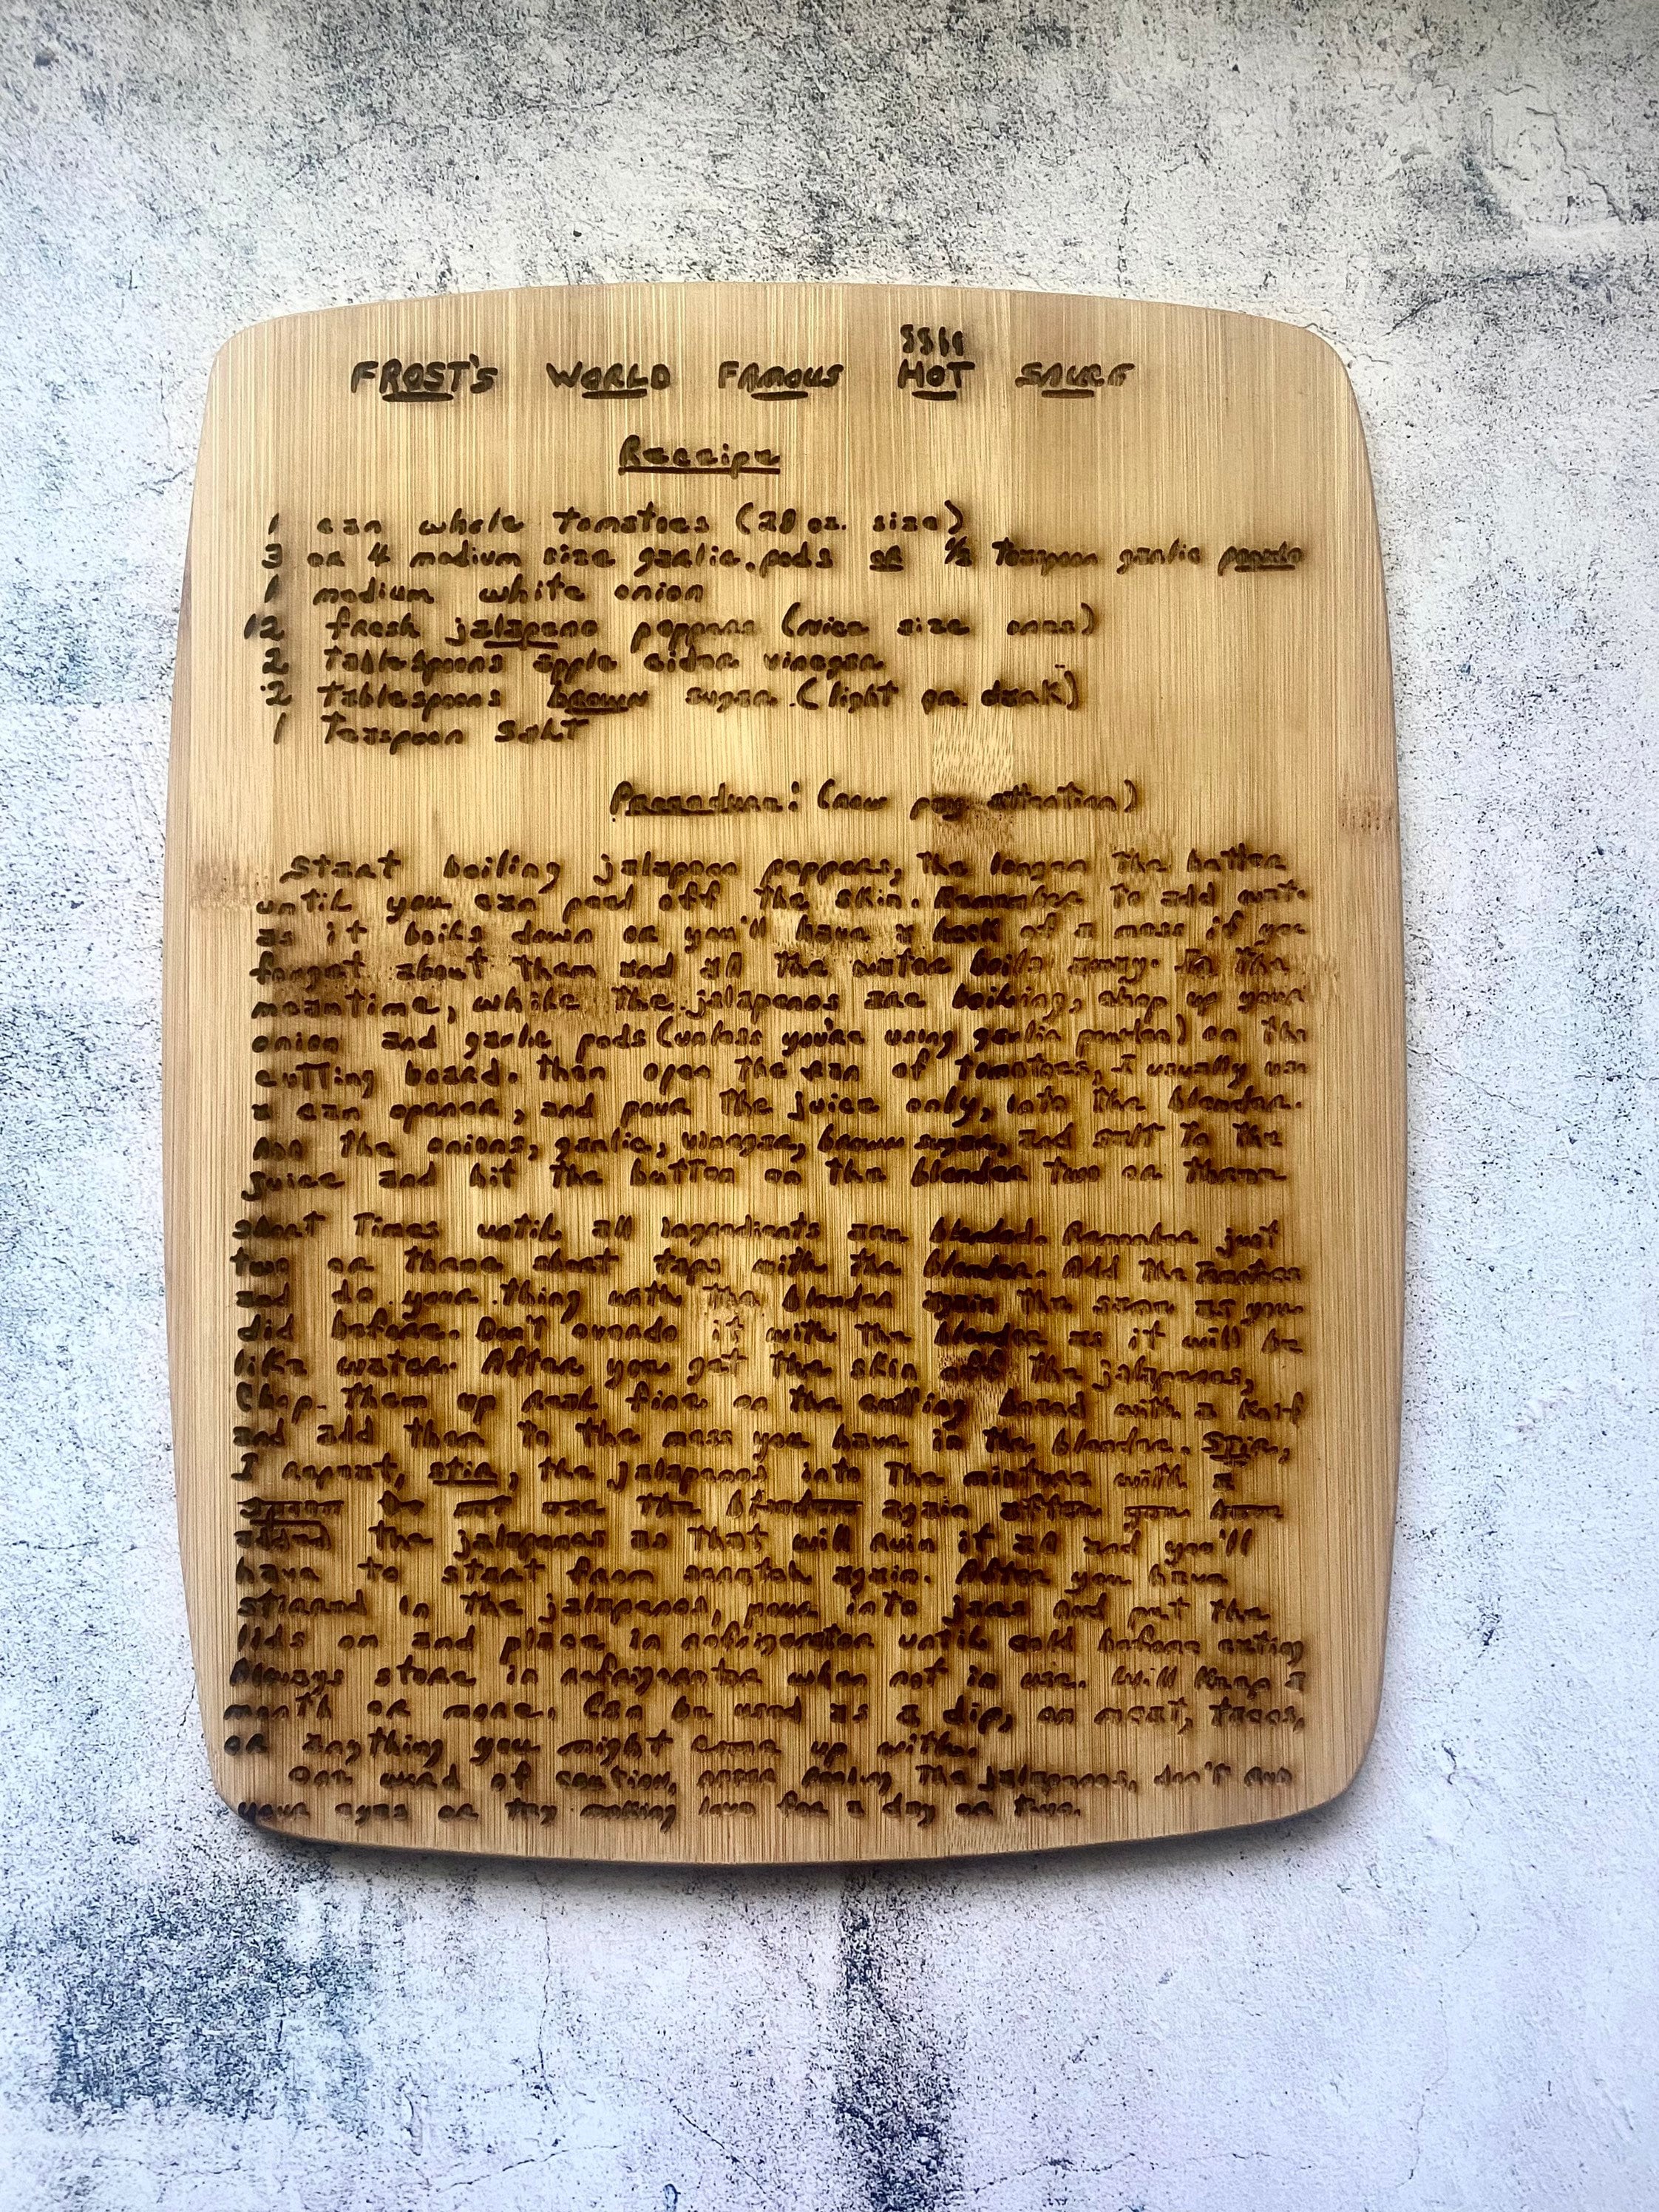 FROST'S WORLD FAMOUS HOT SAUCE
Receipe
1 can whole tomatoes (28 oz. size)
3 or 4 medium size garlic pods or ½ teaspoon garlic powder
1 medium white onion
12 fresh jalapeno peppers (nice size ones)
2 tablespoons apple cider vinegar
2 tablespoons brown sugar (light or dark)
1 teaspoon salt
Procedure: (now pay attention)
Start boiling jalapeno peppers, the longer the better
until you can peel off the skin. Remember to add water
as it boils down or you'll have a heck of a mess if you
forget about them and all the water boils away. In the
meantime, while the jalapenos are boiling, chop up your
onion and garlic pods (unless you're using garlic powder) on the
cutting board. Then open the can of tomatoes, I usually use
a can opener, and pour the juice only, into the blender.
Add the onions, garlic, vinegar, brown sugar, and salt to the
juice and hit the button on the blender two or three
short times until all ingredients are blended. Remember just
two or three short taps with the blender. Add the tomatoes
and do your thing with the blender again the same as you
did before. Don't overdo it with the blender as it will be
like water. After you get the skin off the jalapenos,
Chop them up real fine on the cutting board with a knif
and add them to the mess you have in the blender. Stir,
I repeat, stir, the jalapenos into the mixture with a
spoon Do not use the blender again after you have
added the jalapenos as that will ruin it all and you'll
have to start from scratch again. After you have
stirred in the jalapenos, pour into jars and put the
lids on and place in refrigerator until cold before eating
Always store in refrigerator when not in use. Will keep a
month or more. Can be used as a dip, on meat, tacos,
or anything you might come up with.
One word of caution, after peeling the jalapenos, don't rub
your eyes or try making love for a day or two.